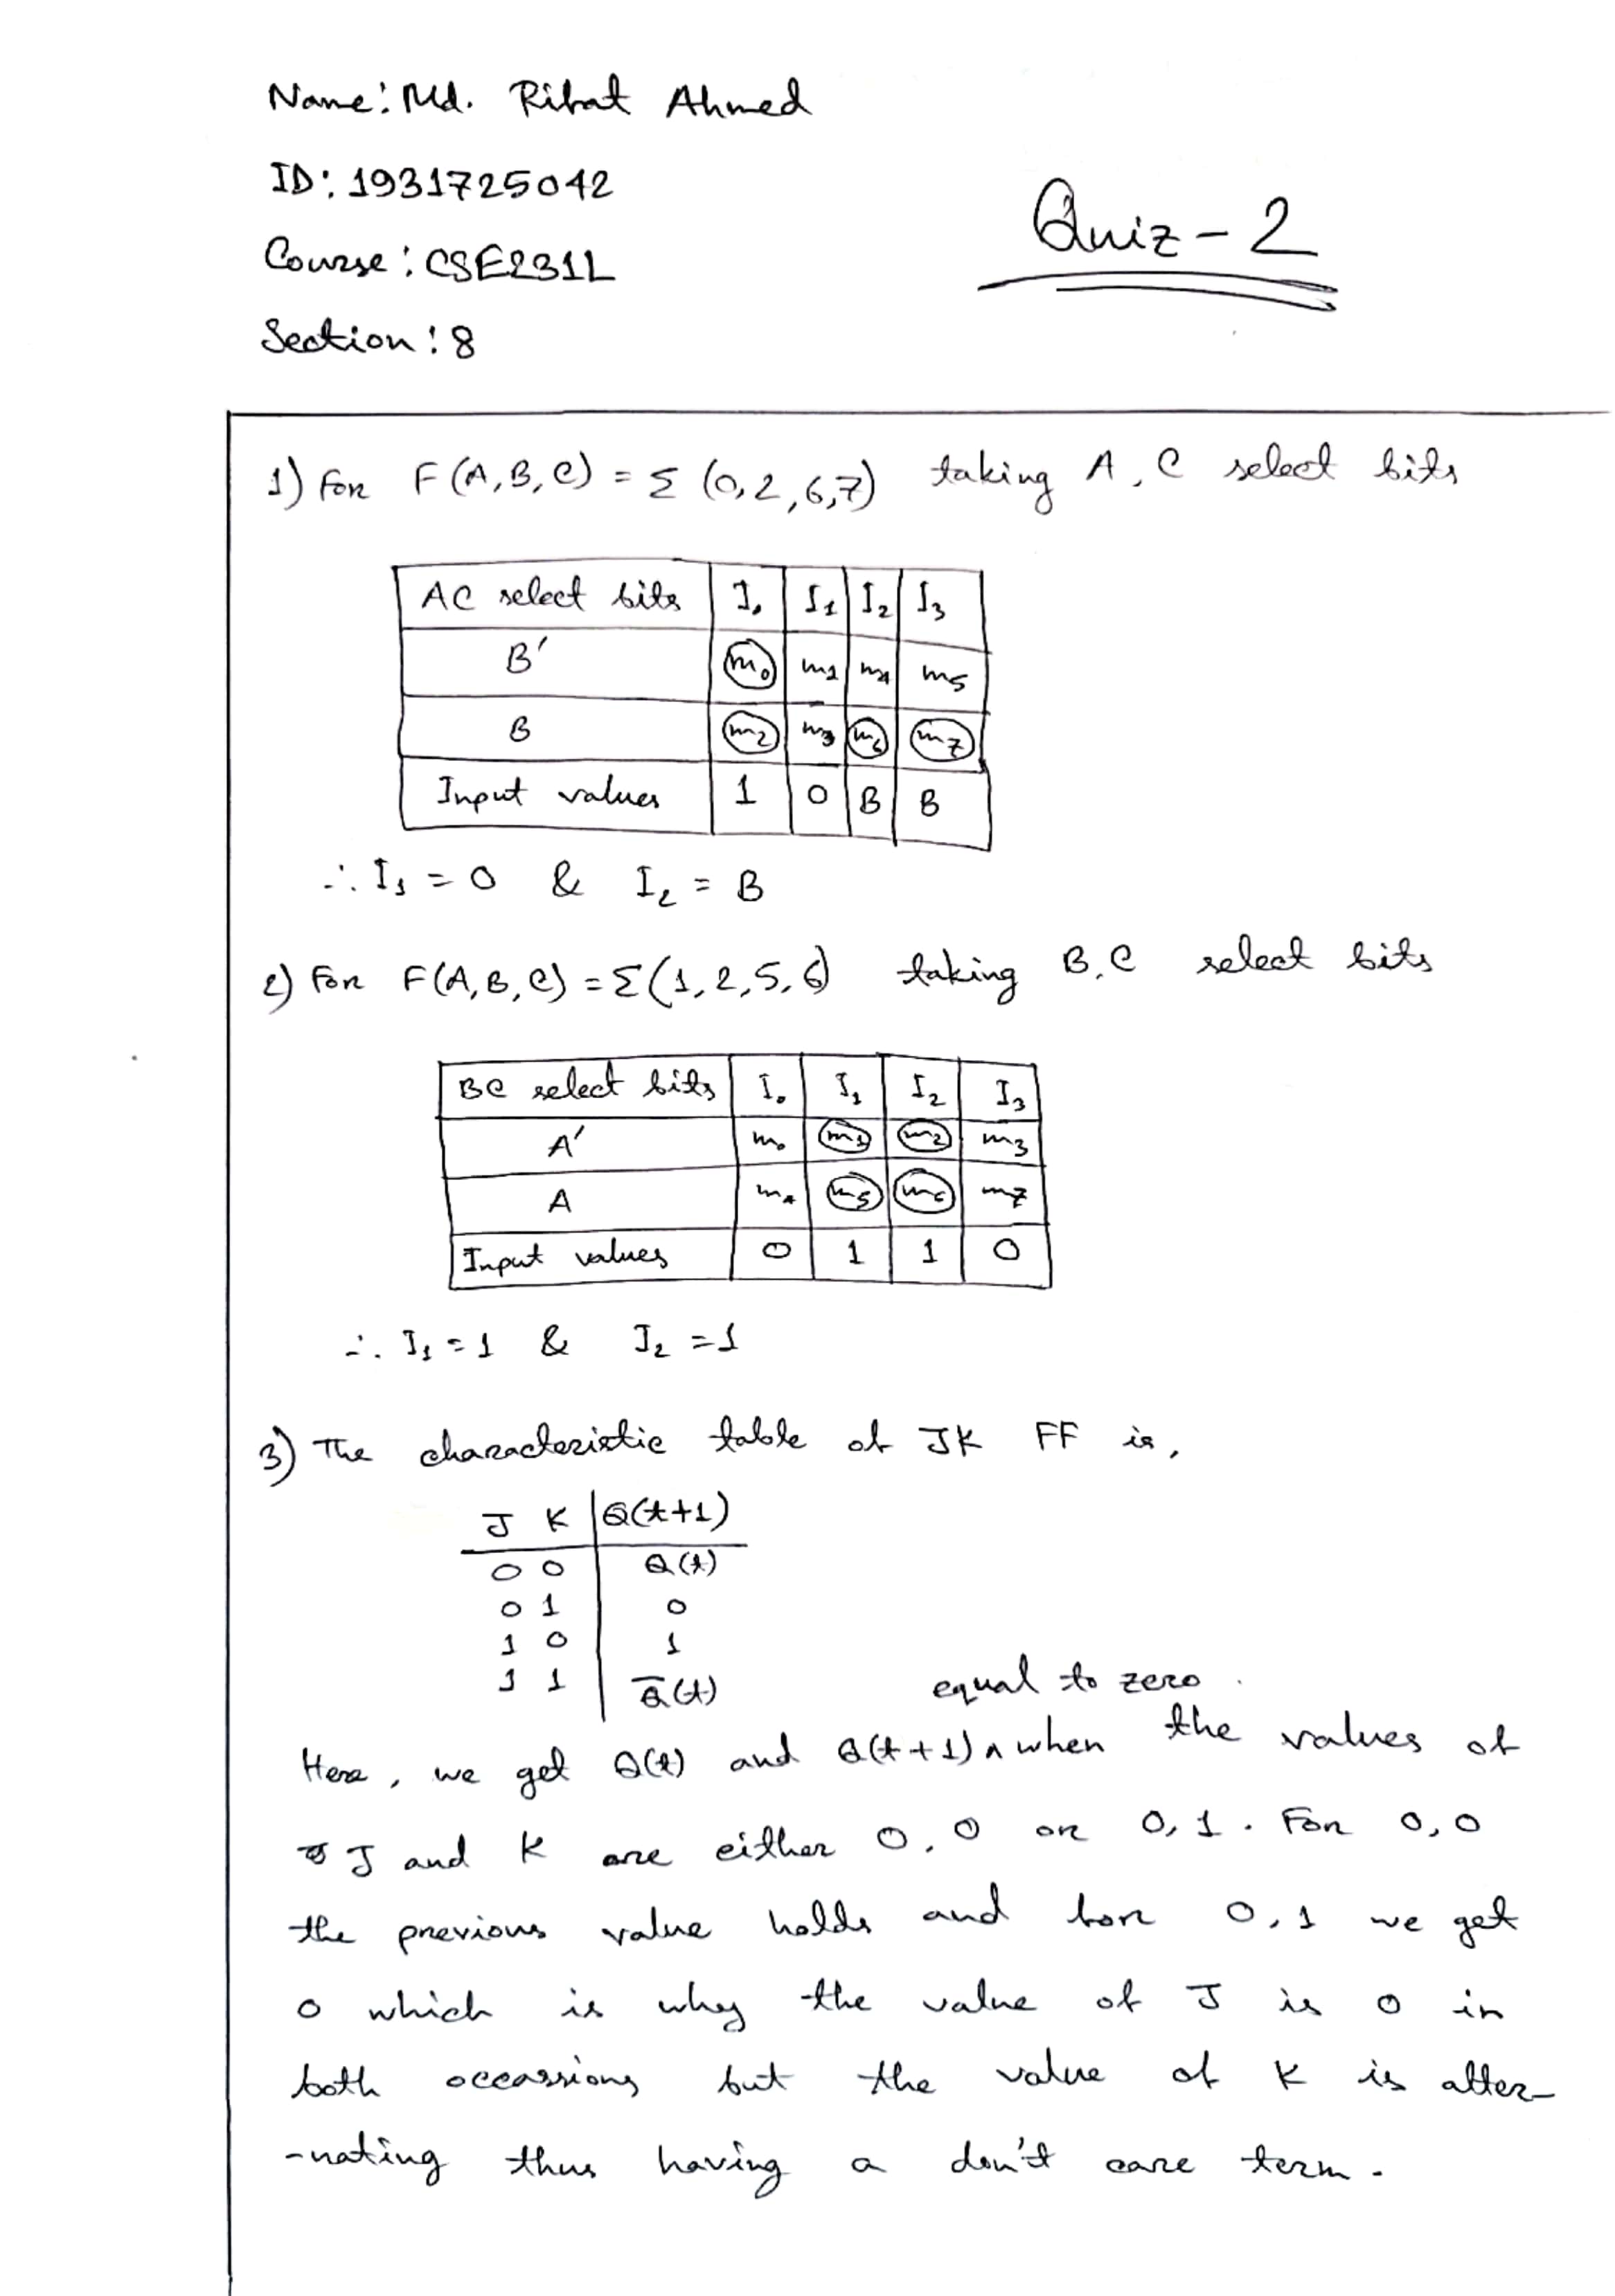 Name: Md. Rifat Ahmed
ID: 1931725042
Course: CSE231L
Section: 8
Quiz-2
1) For F(A,B,C) = Σ (0,2,6,7) taking A,C select bits
AC select bits I₀ I₁ I₂ I₃
B′ m₀ m₁ m₄ m₅
B m₂ m₃ m₆ m₇
Input values 1 0 B B
∴ I₁ = 0 & I₂ = B
2) For F(A,B,C) = Σ(1,2,5,6) taking B,C select bits
BC select bits I₀ I₁ I₂ I₃
A′ m₀ m₁ m₂ m₃
A m₄ m₅ m₆ m₇
Input values 0 1 1 0
∴ I₁ = 1 & I₂ = 1
3) The characteristic table of JK FF is,
J K Q(t+1)
0 0 Q(t)
0 1 0
1 0 1
1 1 Q̅(t)
equal to zero.
Here, we get Q(t) and Q(t+1) ∧ when the values of
J and K are either 0,0 or 0,1. For 0,0
the previous value holds and for 0,1 we get
0 which is why the value of J is 0 in
both occassions but the value of K is alter-
-nating thus having a don't care term.